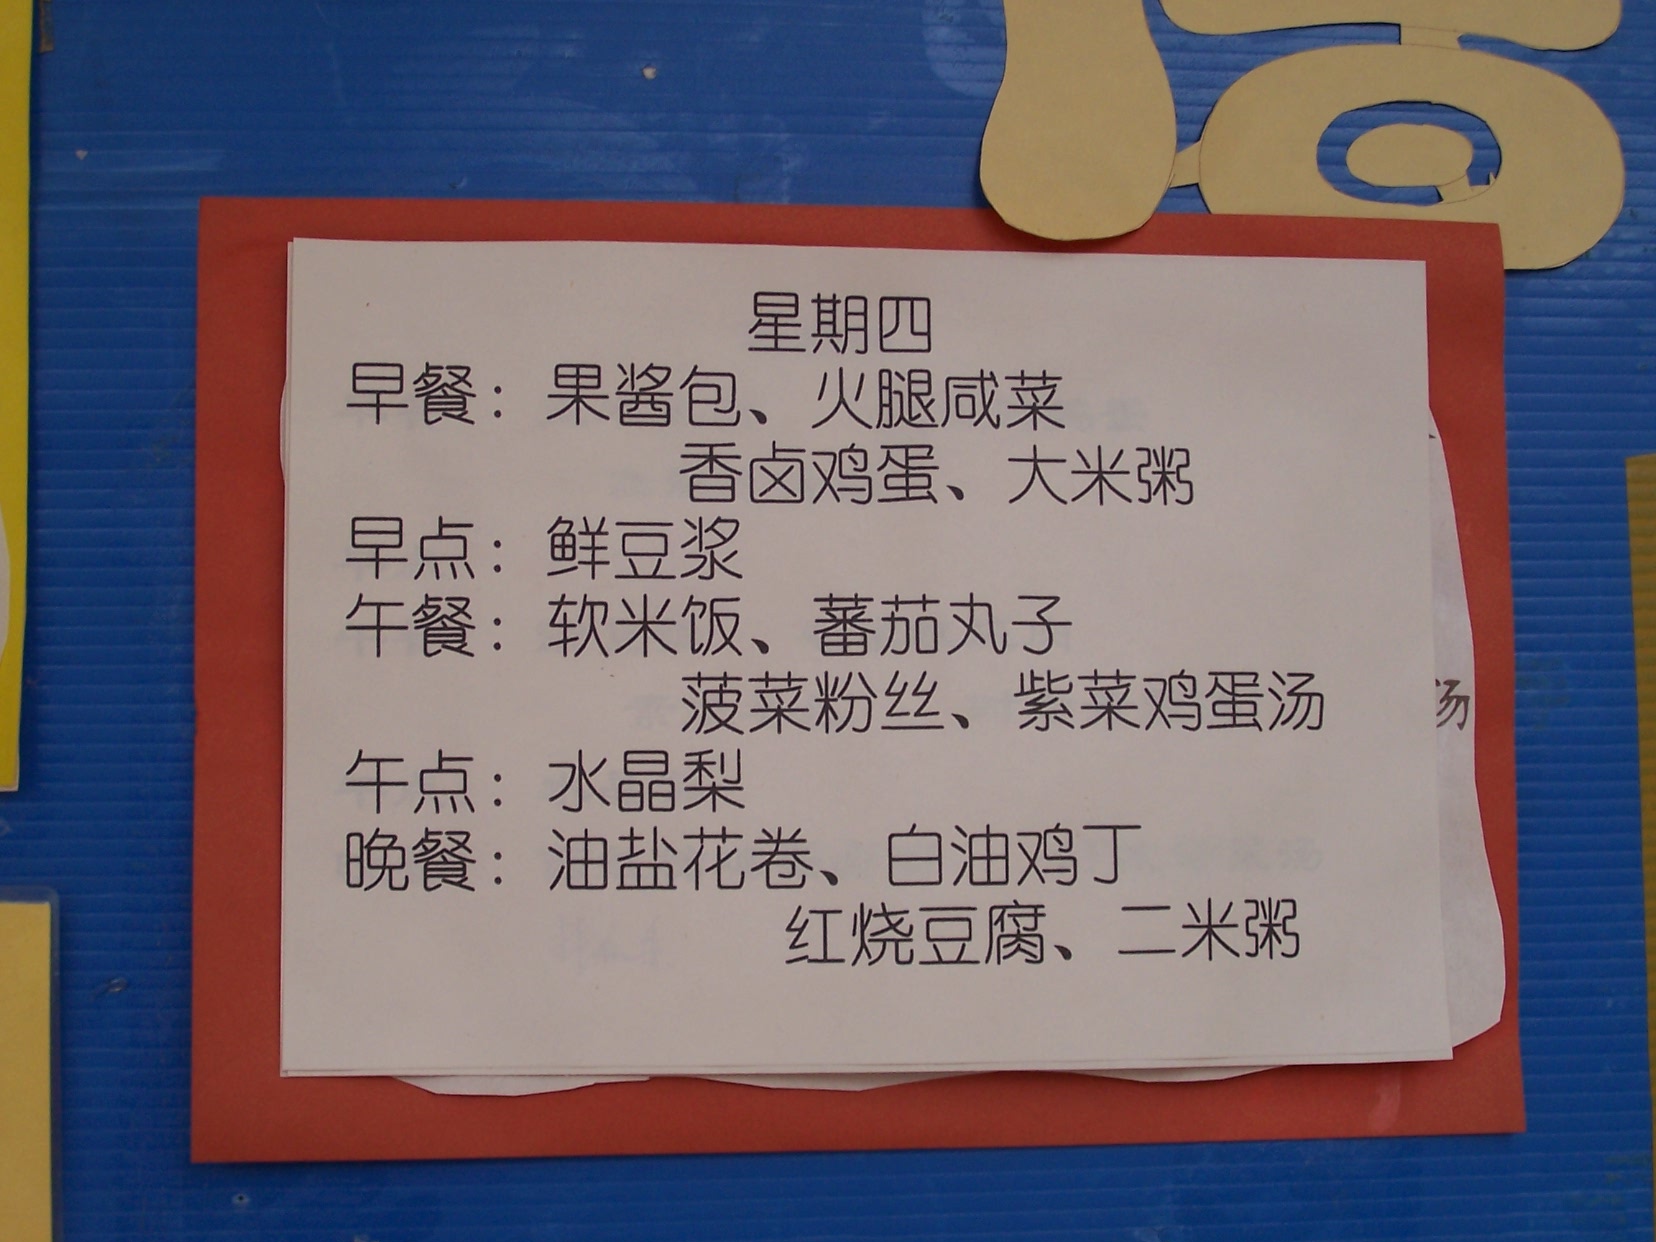 星期四
早餐：果酱包、火腿咸菜
香卤鸡蛋、大米粥
早点：鲜豆浆
午餐：软米饭、蕃茄丸子
菠菜粉丝、紫菜鸡蛋汤
汤
午点：水晶梨
晚餐：油盐花卷、白油鸡丁
红烧豆腐、二米粥